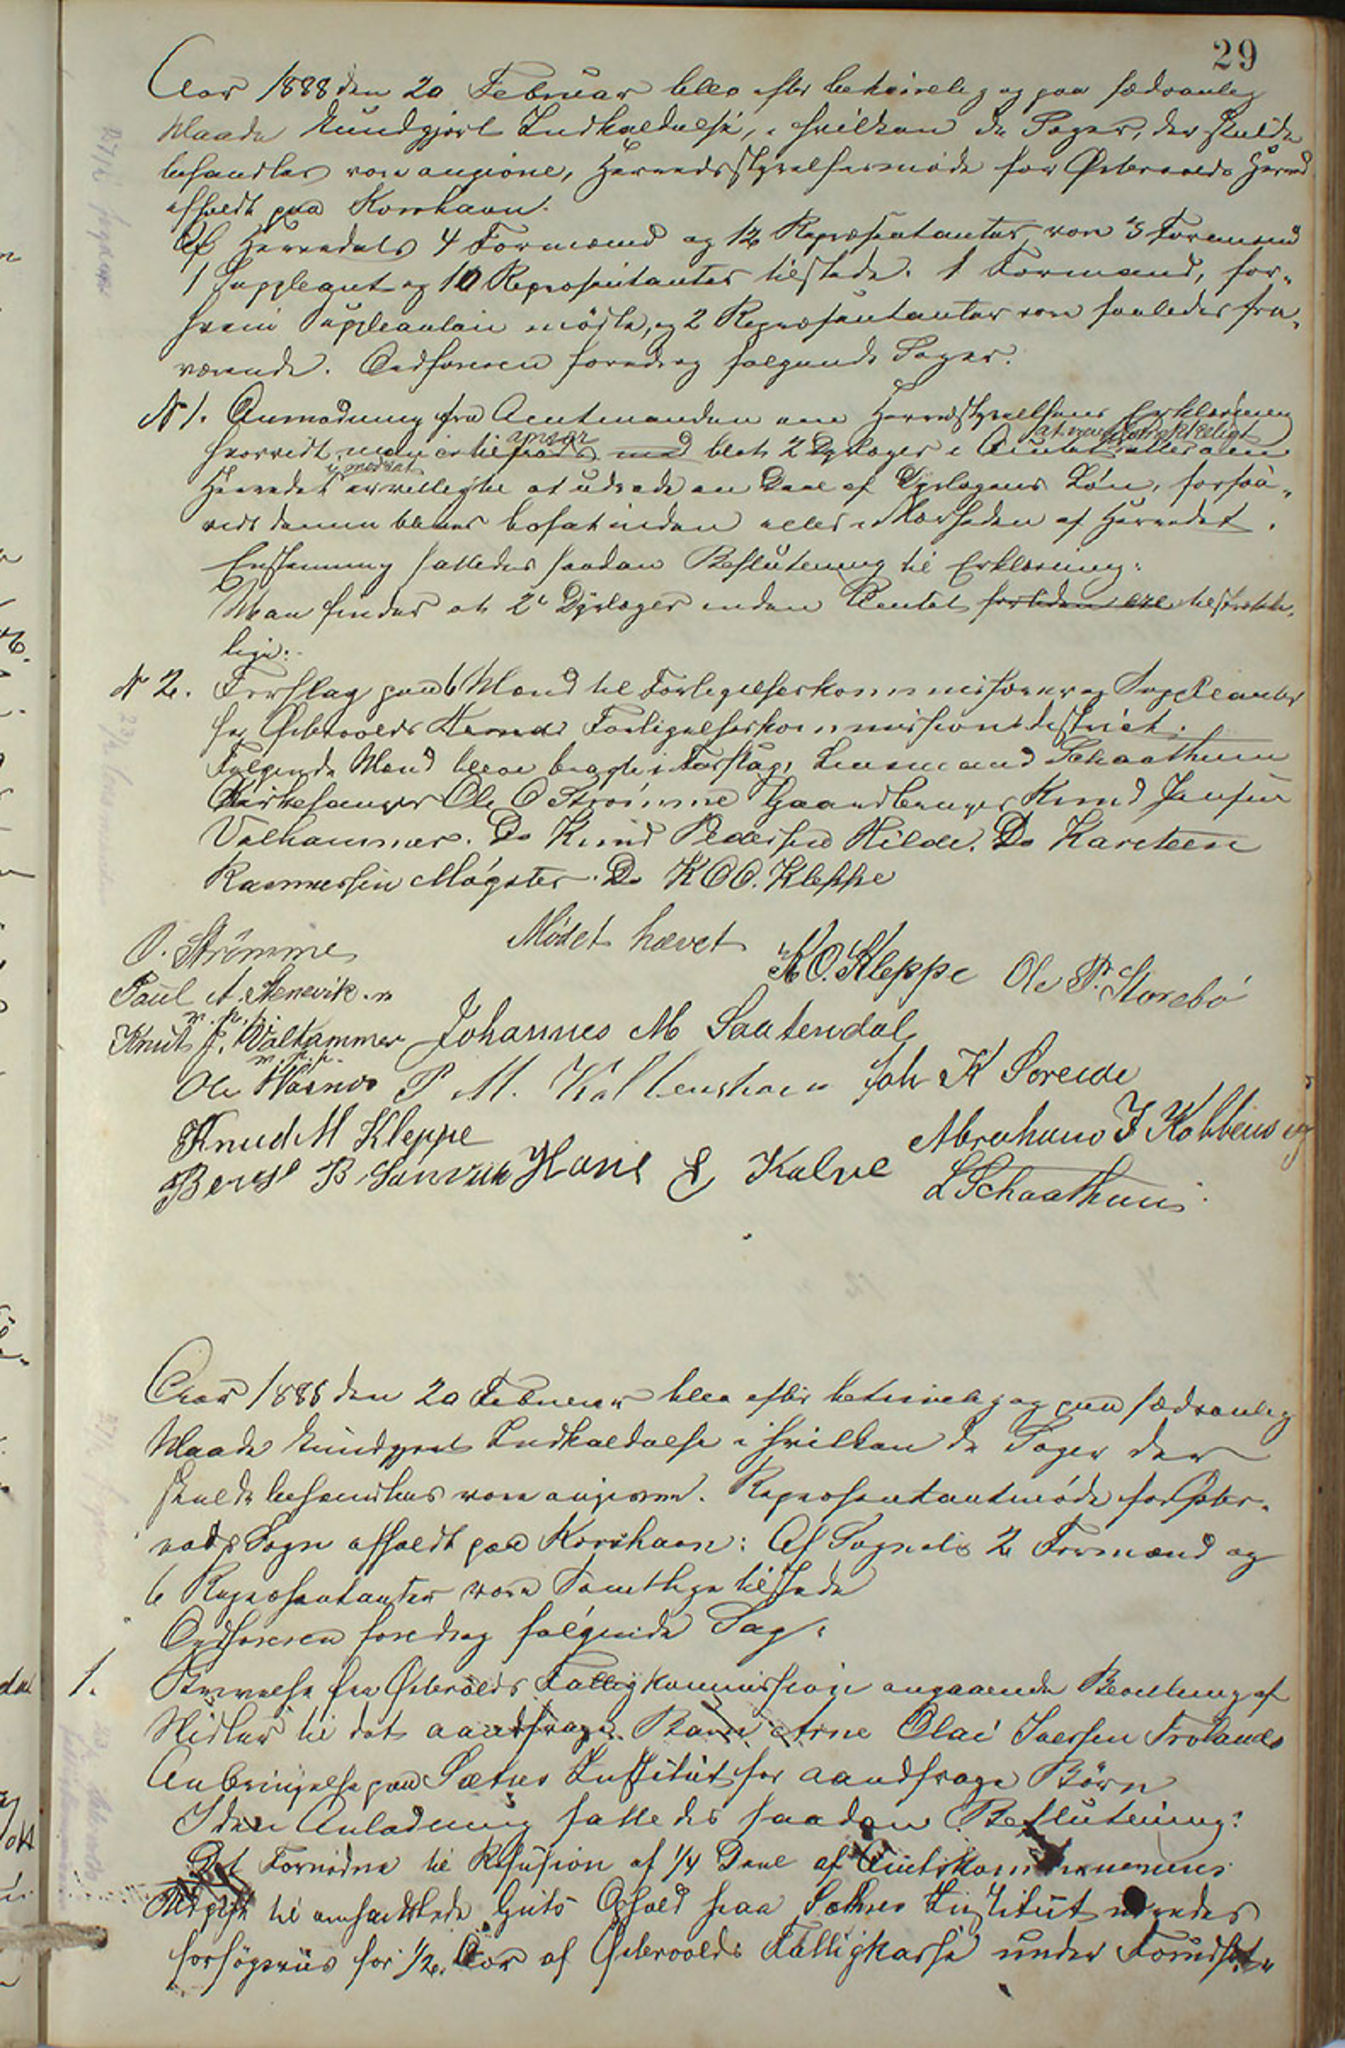 29
Aar 1888 den 20 Februar blev efter betimelig og paa sædvanlig
Maade kundgjort Indkaldelse, i hvilken de Sager, der skulde
behandles vare angivne, Herredsstyrelsesmøde for Østevolds Herred
afholdt paa Korshavn.
Af Herredets 4 Formænd og 12 Repræsentanter vare 3 Formænd
1 Suppleant og 10 Repræsentanter tilstede. 1 Formand, for
hvem Suppleanten mødte, og 2 Repræsentanter vare saaledes fra-
værende. Ordføreren foredrog følgende Sager:
N 1. Anmodning fra Amtmanden om Herredsstyrelsens Erklæring
hvorvidt man anser blot 2 Dyrlæger i Amtet at være tilstrækkeligt eller om
Herredet i modsat er villig til at udrede en Deel af Dyrlægens Løn, forsaa-
vidt denne bliver bosat inden eller i Nærheden af Herredet.
Enstemmig fattedes saadan Beslutning til Erklæring:
Man finder at 2 Dyrlæger inden Amtet tilstrække-
lige.
N 2. Forslag paa 6 Mænd til Forligelseskommissærer og Suppleanter
for Østevolds Forligelseskommissionsdistrict.
Følgende Mænd bleve bragte i Forslag: Lensmand Schaathun
Kirkesanger Ole O Strømme Gaardbruger Knud Jansen
Valhammer. Do Knud Pedersen Hilde. Do Karsteen
Rasmussen Møgster. Do K O O. Kleppe
Mødet hævet
O. Strømme
K O. Kleppe Ole P. Storebø
Paul A. Stenevik
m. p. p.
Knut J. Valhammer Johannes M Sautendal
m. p. p.
Ole Wasnes P M. Kalvenshavn Joh K Soreide
Knud M Kleppe Abraham J Kobbevig
Bergt B Sanvik Hans E Kalve L Schaathun
Aar 1888 den 20 Februar blev efter betimelig og paa sædvanlig
Maade kundgjort Indkaldelse i hvilken de Sager der
skulde behandles vare angivne. Repræsentantmøde for Øste-
volds Sogn afholdt paa Korshavn: Af Sognets 2 Formænd og
6 Repræsentanter vare Samtlige tilstede
Ordføreren foredrog følgende Sag:
1. Skrivelse fra Østevolds Fattigkommission angaaende Bevilling af
Midler til det aandssvage Barn Arne Olai Iversen Frolands
Anbringelse paa Sætres Institut for aandssvage Børn
I den Anledning fattedes saadan Beslutning:
Det Fornødne til Refusion af 1/4 Deel af Amtskommunens
Udgift til omhandlede Guts Ophold paa Sætres Institut udredes
forsøgsviis for 1/2 Aar af Østevolds Fattigkasse under Forudsæt-